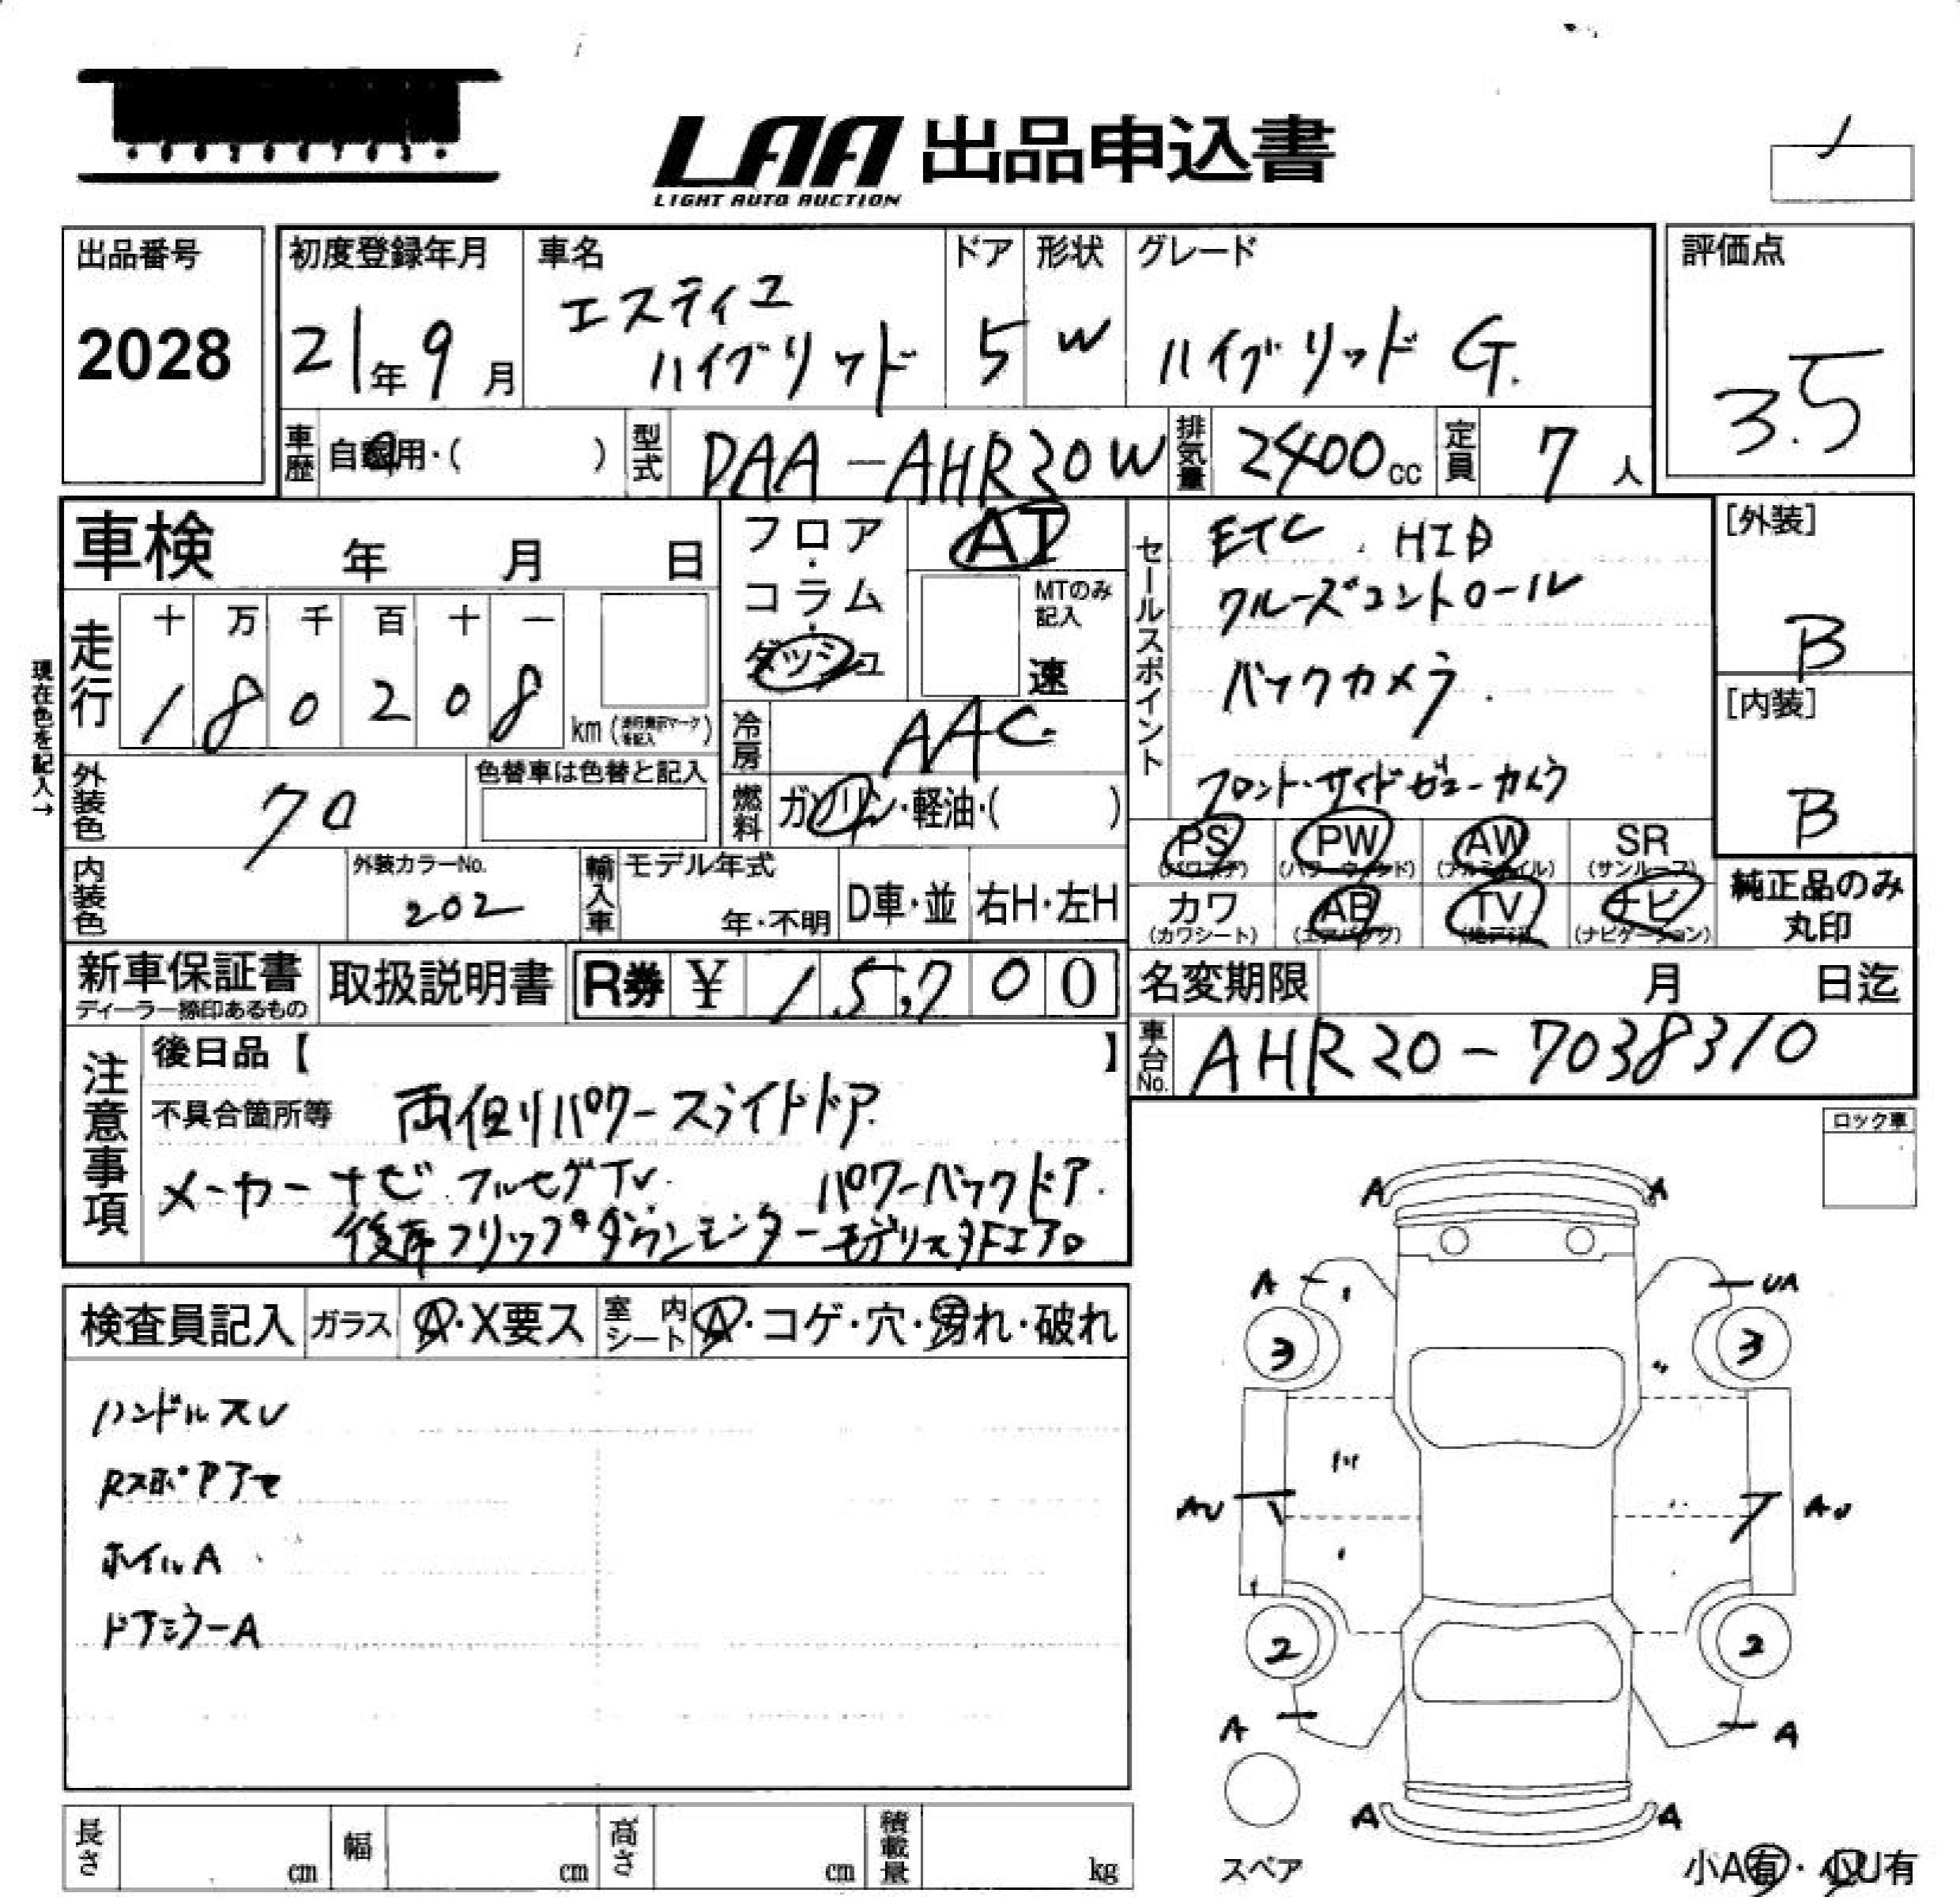 LAA 出品申込書
LIGHT AUTO AUCTION
出品番号
2028
初度登録年月
21年 9月
車名
エスティマ
ハイブリッド
ドア
5
形状
W
グレード
ハイブリッド G.
評価点
3.5
車歴 自家用・( )
型式 DAA-AHR20W
排気量 2400cc
定員 7人
車検 年 月 日
フロア・コラム・ダッシュ
AT
MTのみ記入
速
セールスポイント
ETC . HID
クルーズコントロール
バックカメラ.
フロント・サイドビューカメラ
[外装]
B
[内装]
B
現在色を記入→
走行
十 万 千 百 十 一
1 8 0 2 0 8 km (走行表示マークを記入)
冷房 AAC
燃料 ガソリン・軽油・( )
外装色 クロ
色替車は色替と記入
内装色
外装カラーNo.
202
輸入車
モデル年式
年・不明
D車・並
右H・左H
PS PW AW SR
(パワステ) (パワーウィンド) (アルミホイル) (サンルーフ)
カワ AB TV ナビ
(カワシート) (エアバッグ) (地デジ) (ナビゲーション)
純正品のみ
丸印
新車保証書
ディーラー捺印あるもの
取扱説明書
R券 ¥ 15,700
名変期限 月 日迄
車台No. AHR20-7038310
注意事項
後日品【 】
不具合箇所等 両側パワースライドドア.
メーカーナビ フルセグTV. パワーバックドア.
後席フリップダウンモニター モデリスタFエアロ
ロック車
検査員記入 ガラス A・X要ス 室内シート A・コゲ・穴・汚れ・破れ
ハンドルスレ
ホイルA
ドアミラーA
A A
A UA
3 3
AU AU
2 2
A A
A A
スペア
小A有・小U有
長さ cm
幅 cm
高さ cm
積載量 kg